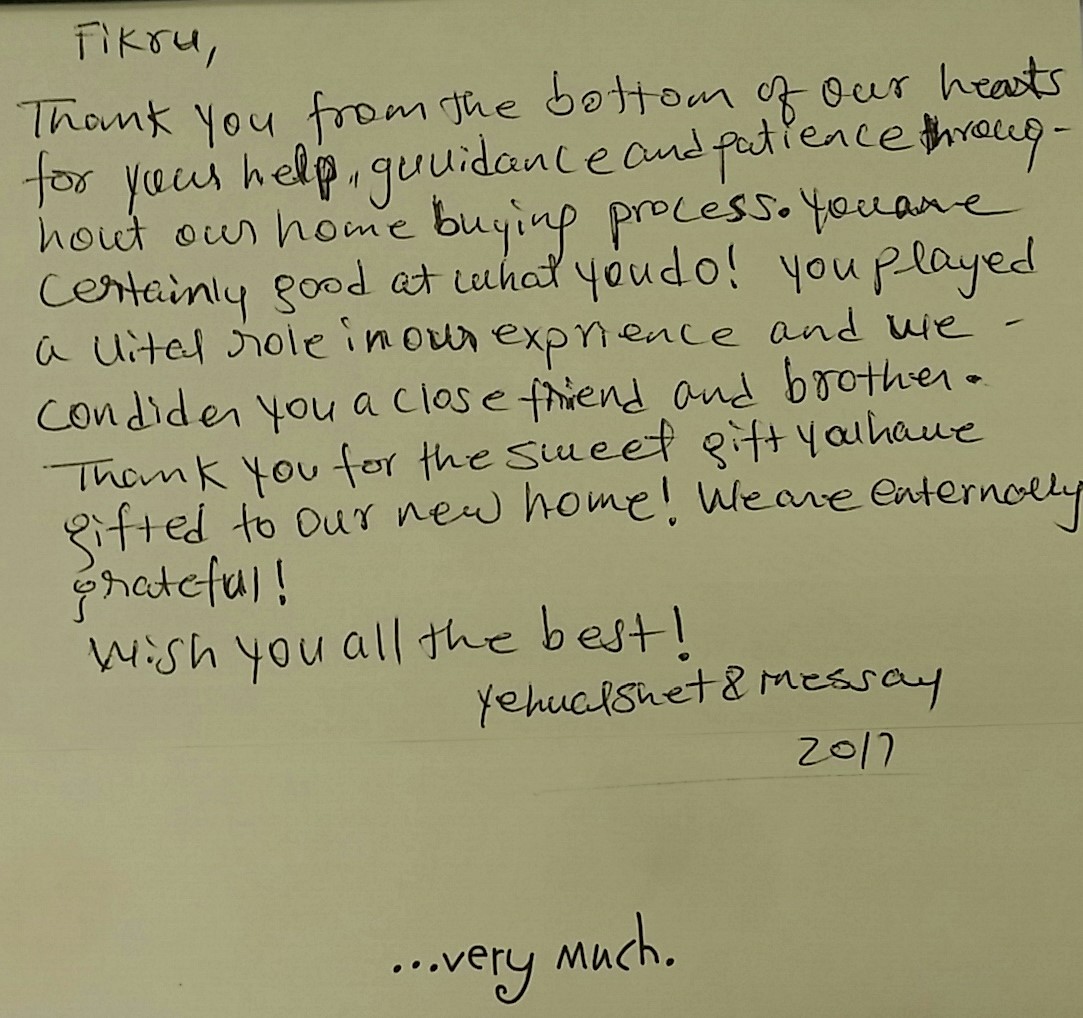 Fikru,
Thank you from the bottom of our hearts
for your help, guuidance and patience throug-
hout our home buying process. You are
certainly good at what you do! you played
a vital role in our exprience and we -
condider you a close friend and brother.
Thank you for the sweet gift you have
gifted to our new home! We are enternally
grateful!
Wish you all the best!
Yehualshet & Messay
2017
...very much.